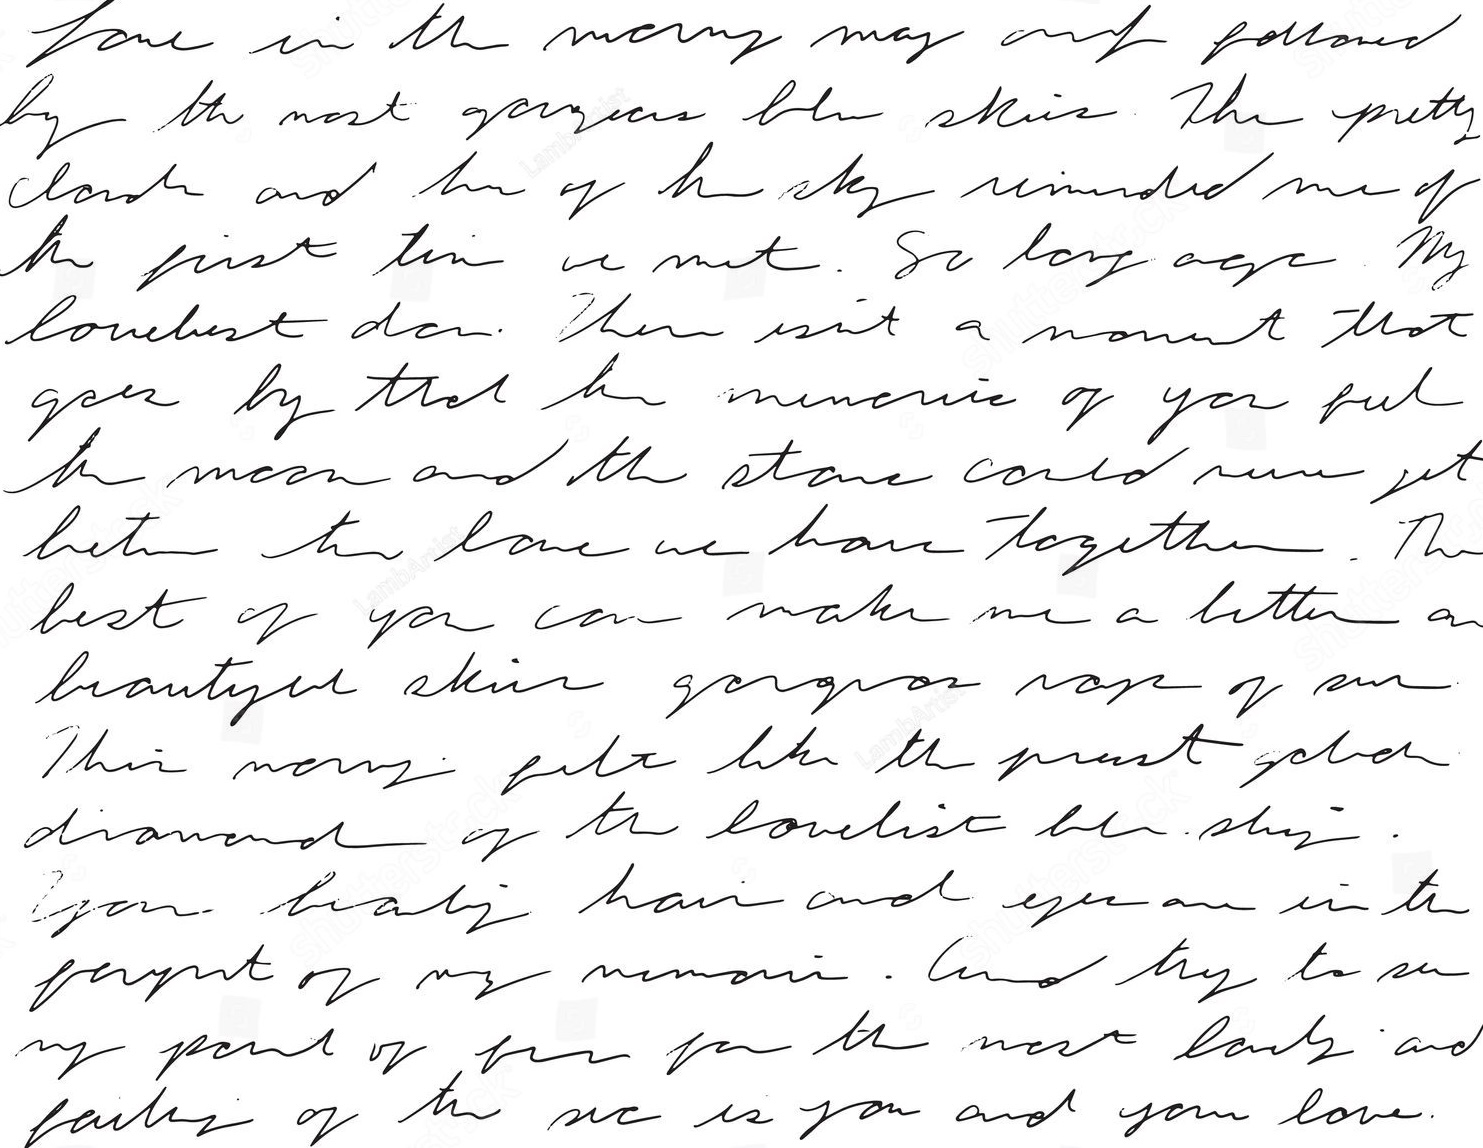 Love in the merny may and followed
by the most gorgeous blue skies. The pretty
clouds and hue of the sky reminded me of
the first time we met. So long ago. My
loveliest dear. There isn't a moment that
goes by that the memories of you feel
the moon and the stars could never get
between the love we have together. The
best of you can make me a better an
beautiful skies gorgeous rays of sun
This feels like the golden
diamond of the loveliest blue sky.
Your beauty hair and eyes are in the
of my memories. And try to see
my point of for the most lovely and
feeling of the sea is you and your love.